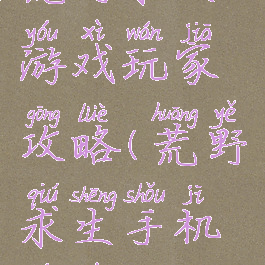 yóu xì wán jiā
游戏玩家
gōng lüè huāng yě
攻略(荒野
qiú shēng shǒu jī
求生手机